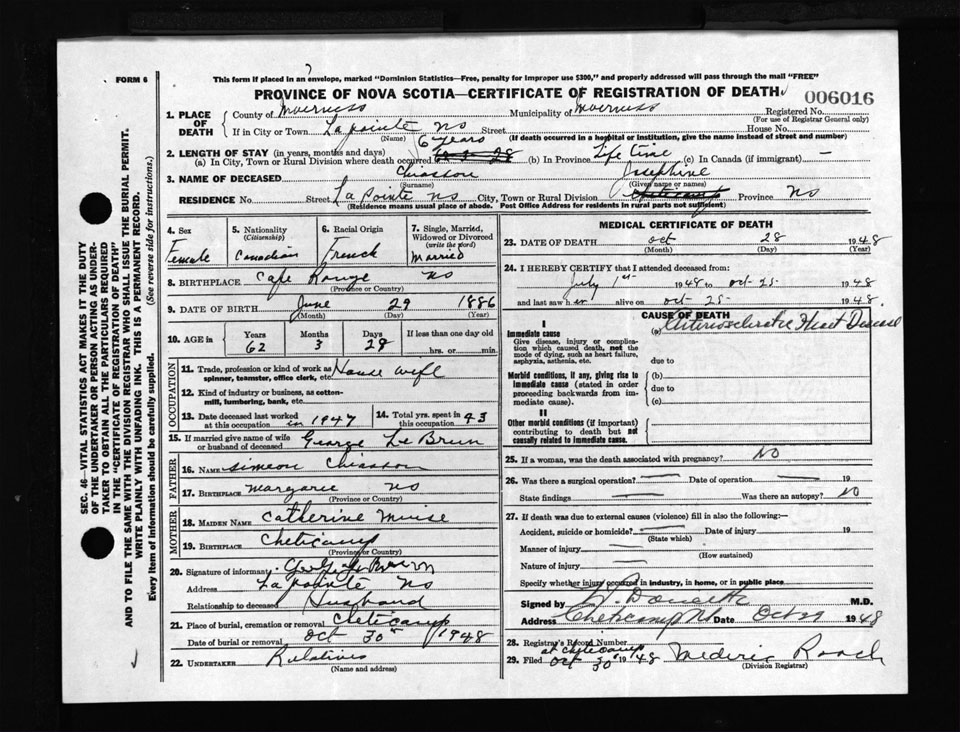 FORM 6
This form if placed in an envelope, marked "Dominion Statistics—Free, penalty for improper use $300," and properly addressed will pass through the mail "FREE"
PROVINCE OF NOVA SCOTIA—CERTIFICATE OF REGISTRATION OF DEATH
006016
1. PLACE OF DEATH
County of Inverness Municipality of Inverness Registered No.
(For use of Registrar General only)
If in City or Town La pointe NS Street House No.
(Name) (If death occurred in a hospital or institution, give the name instead of street and number)
2. LENGTH OF STAY (in years, months and days) 6 years
(a) In City, Town or Rural Division where death occurred (b) In Province Life time (c) In Canada (if immigrant) —
3. NAME OF DECEASED Chiasson Josephine
(Surname) (Given name or names)
RESIDENCE No. Street La Pointe NS City, Town or Rural Division Cheticamp Province NS
(Residence means usual place of abode. Post Office Address for residents in rural parts not sufficient)
SEC. 46—VITAL STATISTICS ACT MAKES IT THE DUTY
OF THE UNDERTAKER OR PERSON ACTING AS UNDER-
TAKER TO OBTAIN ALL THE PARTICULARS REQUIRED
IN THE "CERTIFICATE OF REGISTRATION OF DEATH"
AND TO FILE THE SAME WITH THE DIVISION REGISTRAR WHO SHALL ISSUE THE BURIAL PERMIT.
WRITE PLAINLY WITH UNFADING INK. THIS IS A PERMANENT RECORD.
Every item of information should be carefully supplied. (See reverse side for instructions.)
4. Sex Female
5. Nationality (Citizenship) Canadian
6. Racial Origin French
7. Single, Married, Widowed or Divorced (write the word) Married
8. BIRTHPLACE Cape Rouge NS
(Province or Country)
9. DATE OF BIRTH June 29 1886
(Month) (Day) (Year)
10. AGE in Years 62 Months 3 Days 28 If less than one day old hrs. or min.
OCCUPATION
11. Trade, profession or kind of work as spinner, teamster, office clerk, etc. House wife
12. Kind of industry or business, as cotton-mill, lumbering, bank, etc.
13. Date deceased last worked at this occupation in 1947
14. Total yrs. spent in 43
15. If married give name of wife or husband of deceased George Le Brun
FATHER
16. NAME Simeon Chiasson
17. BIRTHPLACE Margaree NS
(Province or Country)
MOTHER
18. MAIDEN NAME Catherine Muise
19. BIRTHPLACE Cheticamp
(Province or Country)
20. Signature of informant Le Brun
Address La pointe NS
Relationship to deceased Husband
21. Place of burial, cremation or removal Cheticamp
Date of burial or removal Oct 30 1948
22. UNDERTAKER Relatives
(Name and address)
MEDICAL CERTIFICATE OF DEATH
23. DATE OF DEATH Oct 28 1948
(Month) (Day) (Year)
24. I HEREBY CERTIFY that I attended deceased from:
July 1st 1948 to Oct-25- 1948
and last saw her alive on Oct-25- 1948.
CAUSE OF DEATH
I
Immediate cause (a) Arteriosclerotic Heart Disease
Give disease, injury or complication which caused death, not the mode of dying, such as heart failure, asphyxia, asthenia, etc. due to
Morbid conditions, if any, giving rise to immediate cause (stated in order proceeding backwards from immediate cause). (b)
due to
(c)
II
Other morbid conditions (if important) contributing to death but not causally related to immediate cause.
25. If a woman, was the death associated with pregnancy? NO
26. Was there a surgical operation? — Date of operation — 19
State findings — Was there an autopsy? NO
27. If death was due to external causes (violence) fill in also the following:—
Accident, suicide or homicide? — Date of injury 19
(State which)
Manner of injury —
(How sustained)
Nature of injury —
Specify whether injury occurred in industry, in home, or in public place
Signed by M.D.
Address Cheticamp NS Date Oct 29 1948
28. Registrar's Record Number
at Cheticamp
29. Filed Oct 30 1948 Mederic Roach
(Division Registrar)